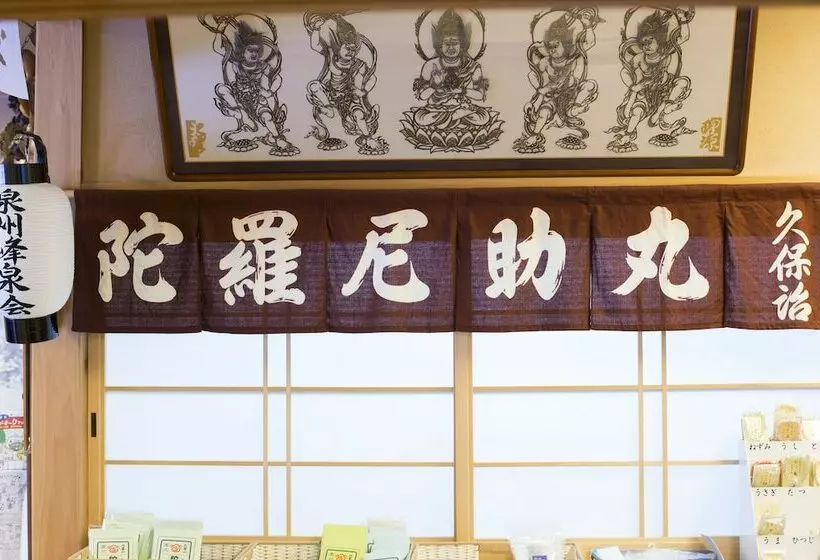 陀羅尼助丸
久保治
泉州峰泉会
ねずみ うし と
うさぎ たつ
うま ひつじ